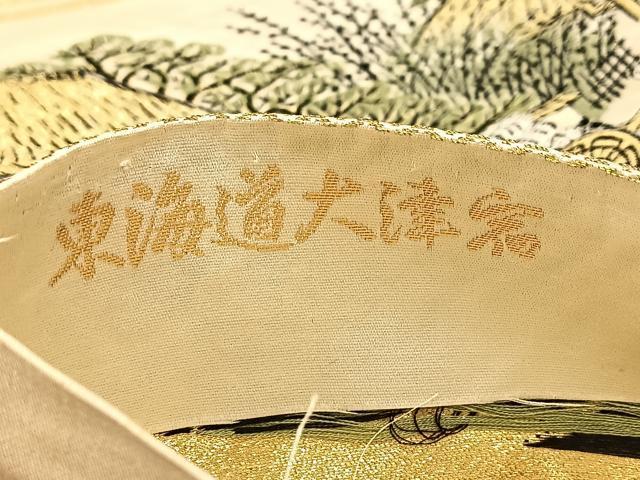 東海道大津宿